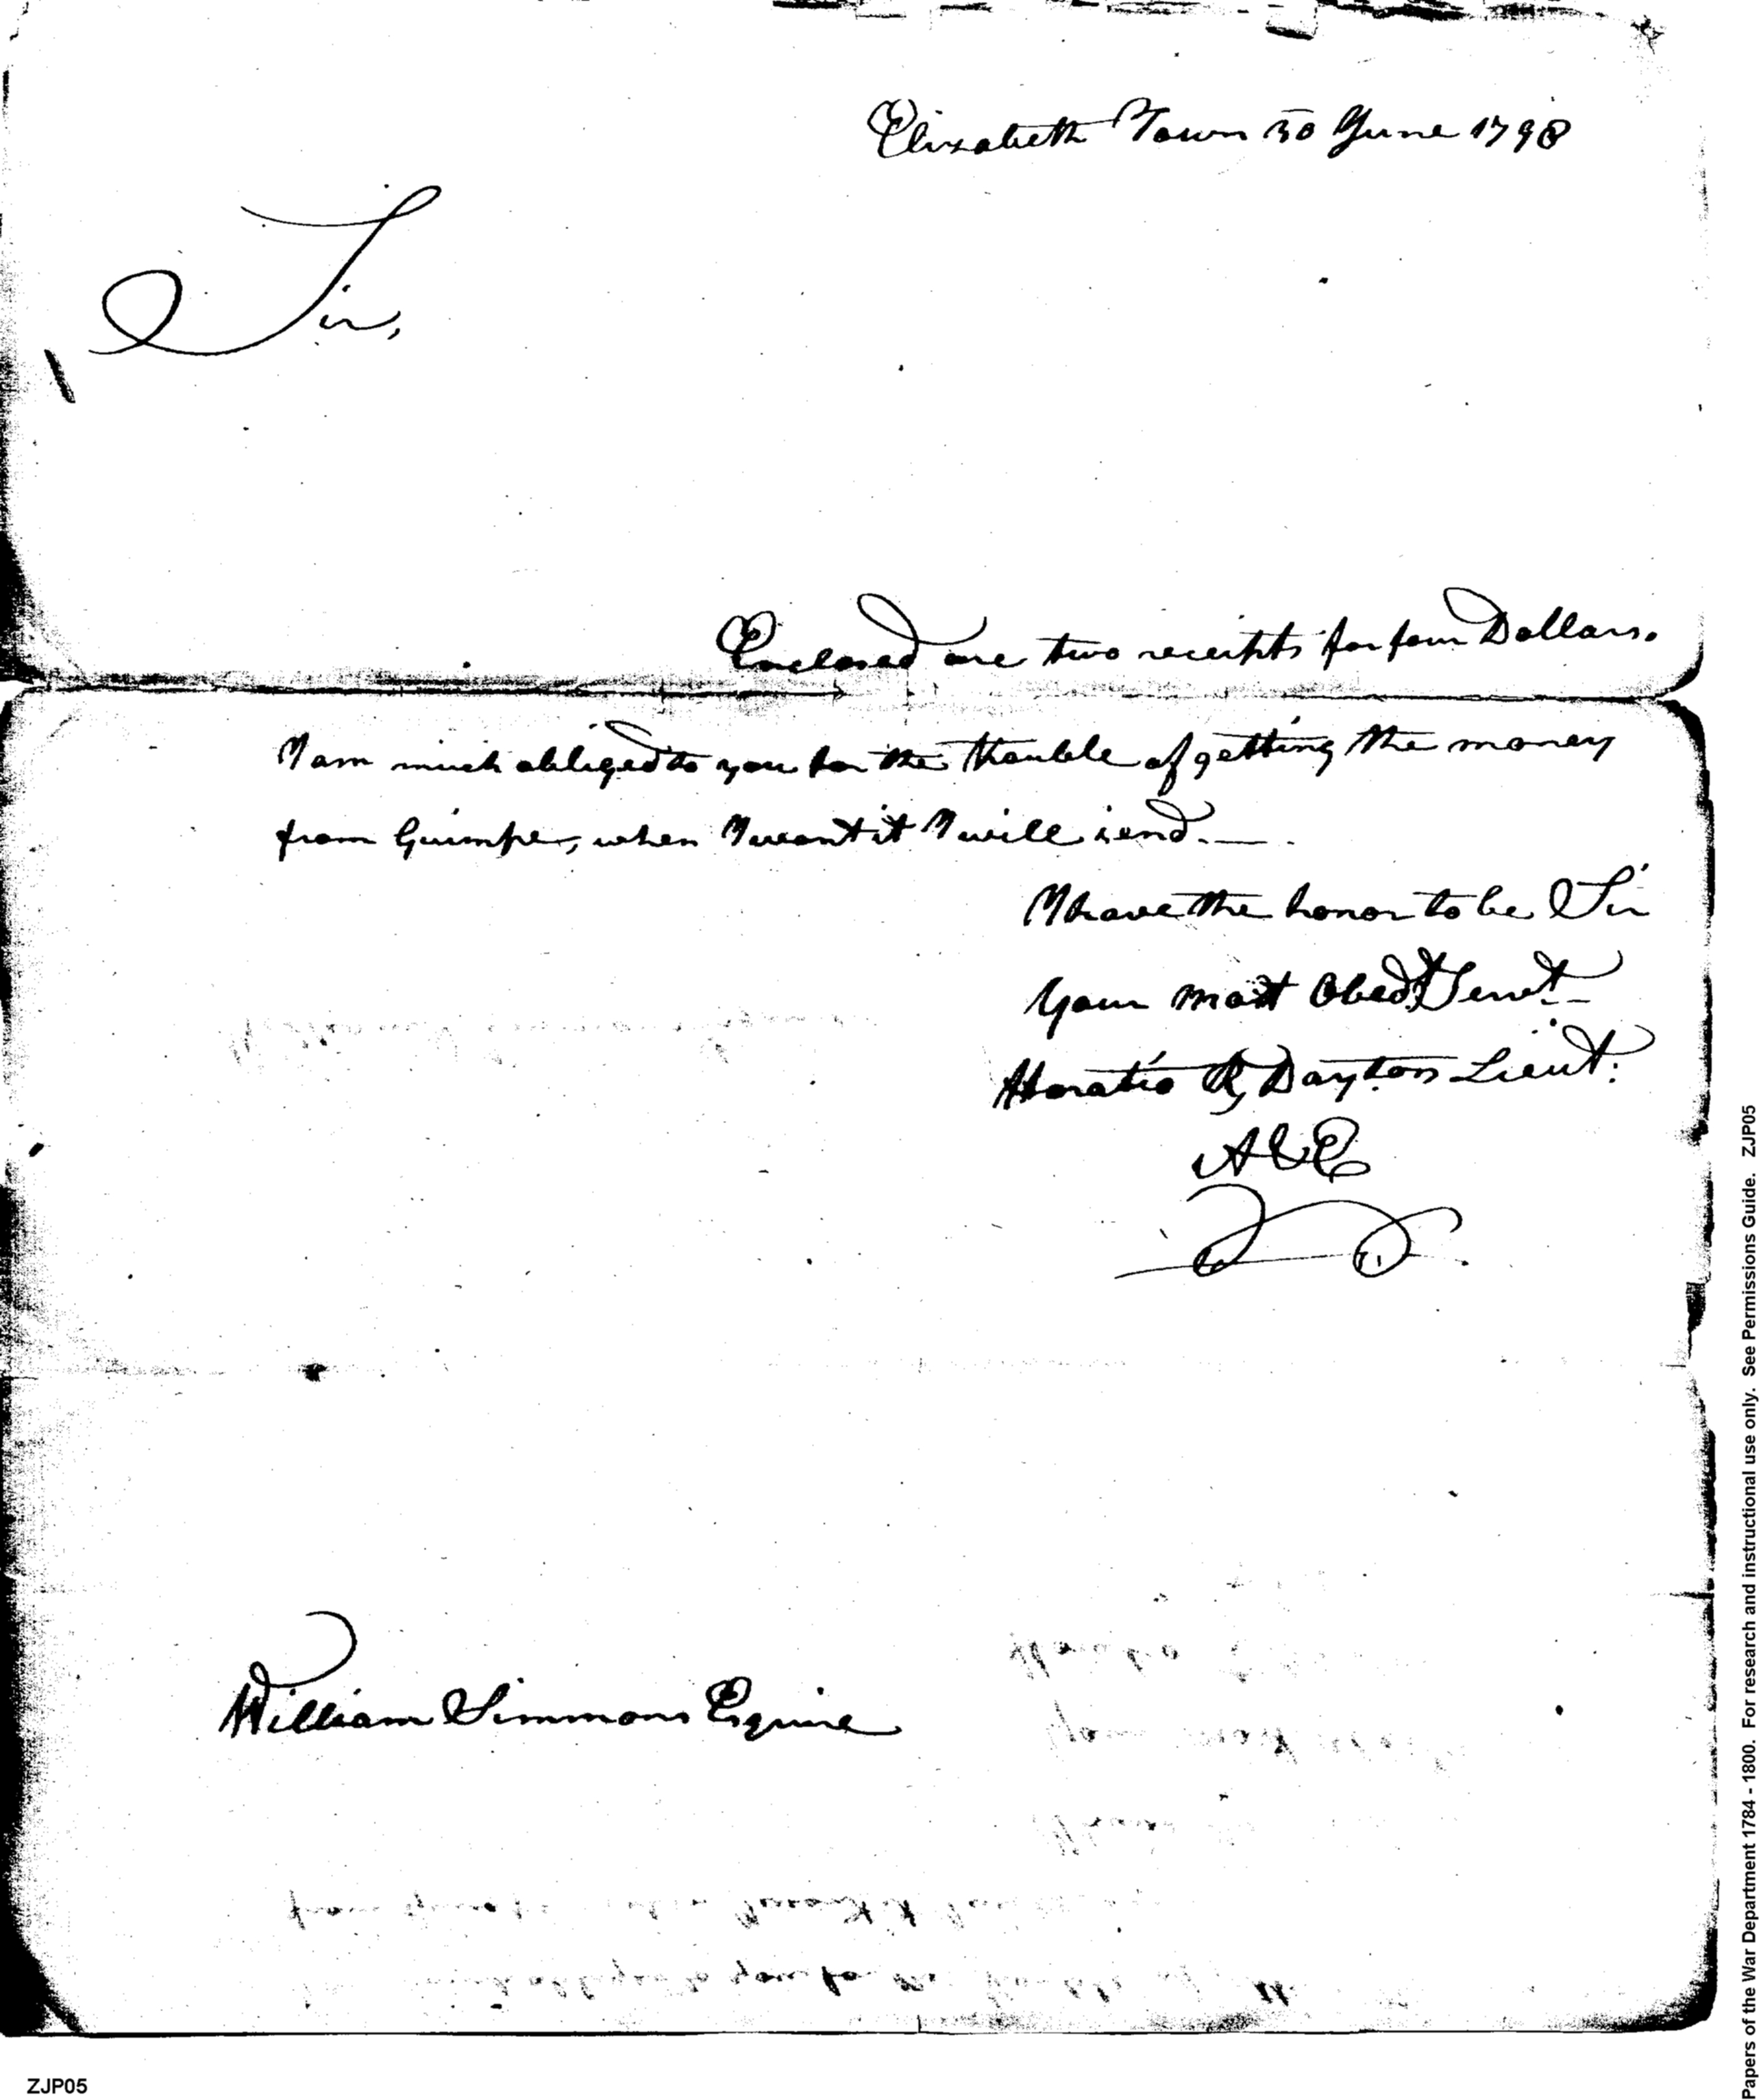 Elizabeth Town 30 June 1798
Sir,
Enclosed are two receipts for four Dollars.
I am much obliged to you for the trouble of getting the money
from Guimpe, when I want it I will send. —
I have the honor to be Sir
Your most Obedt Servt
Horatio R Dayton Lieut.
A & E
William Simmons Esquire
Papers of the War Department 1784 - 1800. For research and instructional use only. See Permissions Guide. ZJP05
ZJP05